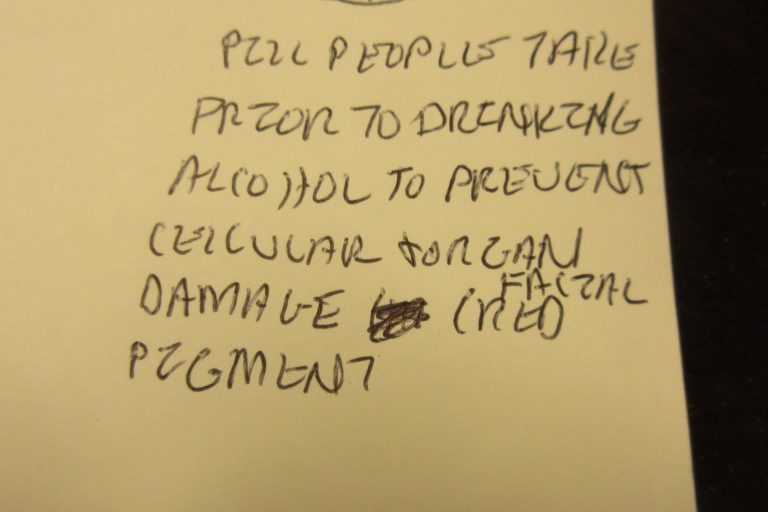 PILL PEOPLE TAKE
PRIOR TO DRINKING
ALCOHOL TO PREVENT
CELLULAR & ORGAN
DAMAGE (RED FACIAL
PIGMENT